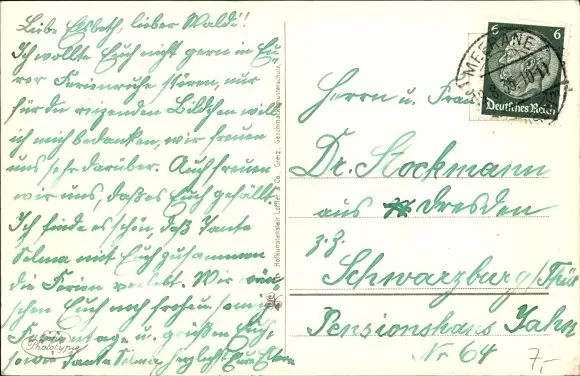 Liebe Elsbeth, lieber Waldi!
Ich wollte Euch nicht gern in Eu-
rer Ferienruhe stören, nur
für die reizenden Bildchen will
ich mich bedanken, wir freuen
uns sehr darüber. Auch freuen
wir uns, daß es Euch gefällt.
Ich finde es schön, daß Tante
Selma mit Euch zusammen
die Ferien verlebt. Wir wün-
schen Euch noch frohe u. sonnige
Ferientage u. grüßen Euch,
sowie Tante Selma herzlichst Eure Eltern
Phototypie
Hofkunstanstalt Löffler & Co., Greiz.
MEERANE
6 6
Deutsches Reich
Herrn u. Frau
Dr. Stockmann
aus Dresden
z. Z.
Schwarzburg/Thür
Pensionshaus Jahn
Nr 64
7,-